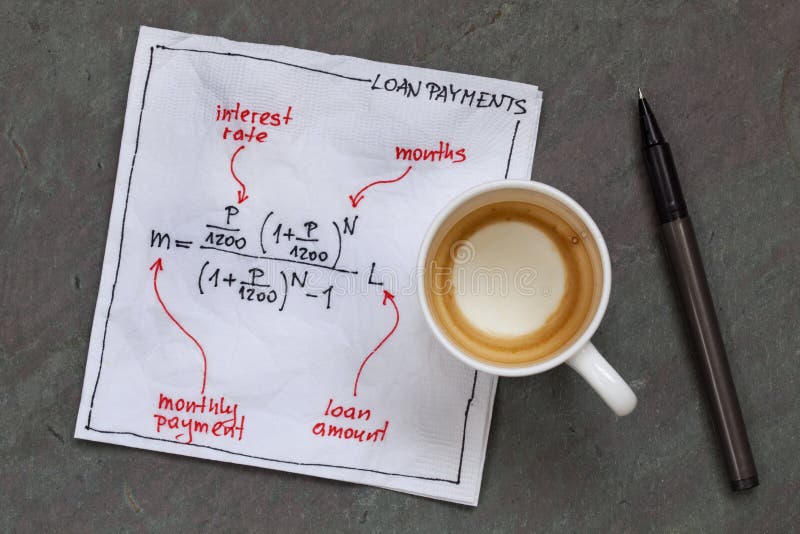 LOAN PAYMENTS
interest
rate
months
m = P/1200 (1 + P/1200)^N / (1 + P/1200)^N - 1 L
monthly
payment
loan
amount
dreamstime